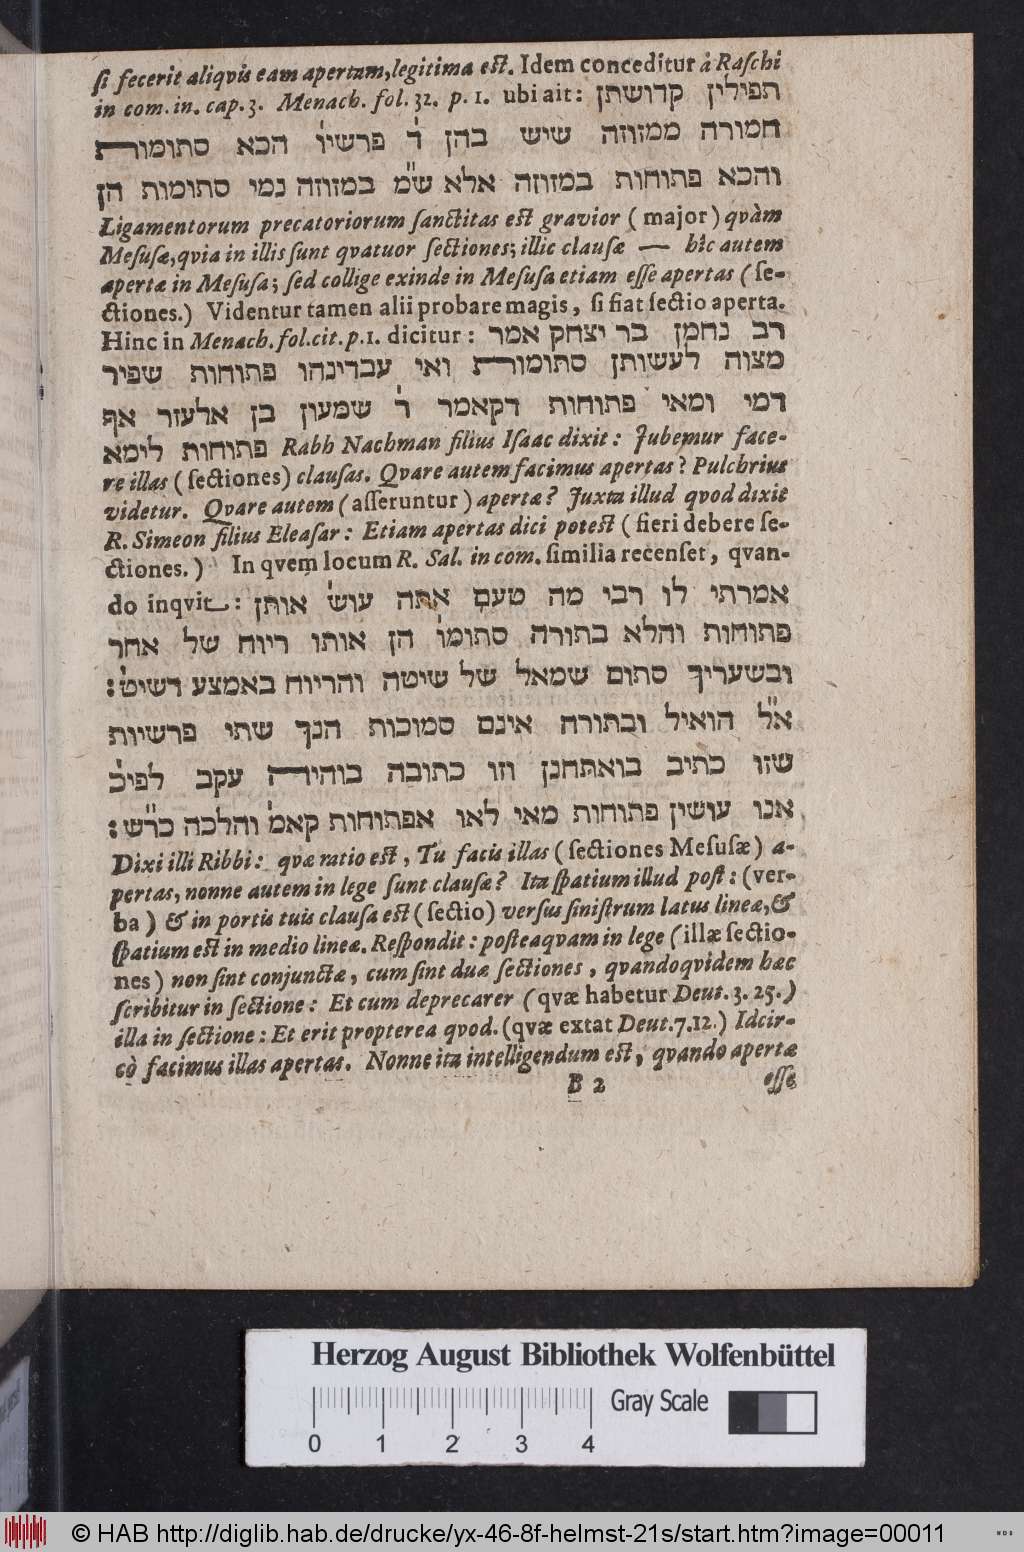 si fecerit aliqvis eam apertam, legitima est. Idem conceditur à Raschi
in com. in. cap. 3. Menach. fol. 32. p. 1. ubi ait: תפילין קדושתן
חמורה ממזוזה שיש בהן ד' פרשיו' הכא סתומות
והכא פתוחות במזוזה אלא ש"מ במזוזה נמי סתומות הן
Ligamentorum precatoriorum sanctitas est gravior (major) qvàm
Mesusæ, qvia in illis sunt qvatuor sectiones; illic clausæ — hîc autem
apertæ in Mesusa; sed collige exinde in Mesusa etiam esse apertas (se-
ctiones.) Videntur tamen alii probare magis, si fiat sectio aperta.
Hinc in Menach. fol. cit. p. 1. dicitur: רב נחמן בר יצחק אמר
מצוה לעשותן סתומות ואי עבדינהו פתוחות שפיר
דמי ומאי פתוחות דקאמר ר' שמעון בן אלעזר אף
פתוחות לימא Rabh Nachman filius Isaac dixit: Jubemur face-
re illas (sectiones) clausas. Qvare autem facimus apertas? Pulchrius
videtur. Qvare autem (asseruntur) apertæ? Juxta illud qvod dixit
R. Simeon filius Eleasar: Etiam apertas dici potest (fieri debere se-
ctiones.) In qvem locum R. Sal. in com. similia recenset, qvan-
do inqvit: אמרתי לו רבי מה טעם אתה עוש' אותן
פתוחות והלא בתורה סתומו' הן אותו ריוח של אחר
ובשעריך סתום שמאל של שיטה והריוח באמצע דשיט':
א"ל הואיל ובתורה אינם סמוכות הנך שתי פרשיות
שזו כתיב בואתחנן וזו כתובה בוהיה עקב לפיכ'
אנו עושין פתוחות מאי לאו אפתוחות קאמ' והלכה כר"ש:
Dixi illi Ribbi: qvæ ratio est, Tu facis illas (sectiones Mesusæ) a-
pertas, nonne autem in lege sunt clausæ? Ita spatium illud post: (ver-
ba) & in portis tuis clausa est (sectio) versus sinistrum latus lineæ, &
spatium est in medio lineæ. Respondit: posteaqvam in lege (illæ sectio-
nes) non sint conjunctæ, cum sint duæ sectiones, qvandoqvidem hæc
scribitur in sectione: Et cum deprecarer (qvæ habetur Deut. 3. 25.)
illa in sectione: Et erit propterea qvod. (qvæ extat Deut. 7. 12.) Idcir-
cò facimus illas apertas. Nonne ita intelligendum est, qvando apertæ
B 2 esse
Herzog August Bibliothek Wolfenbüttel
Gray Scale
0 1 2 3 4
© HAB http://diglib.hab.de/drucke/yx-46-8f-helmst-21s/start.htm?image=00011